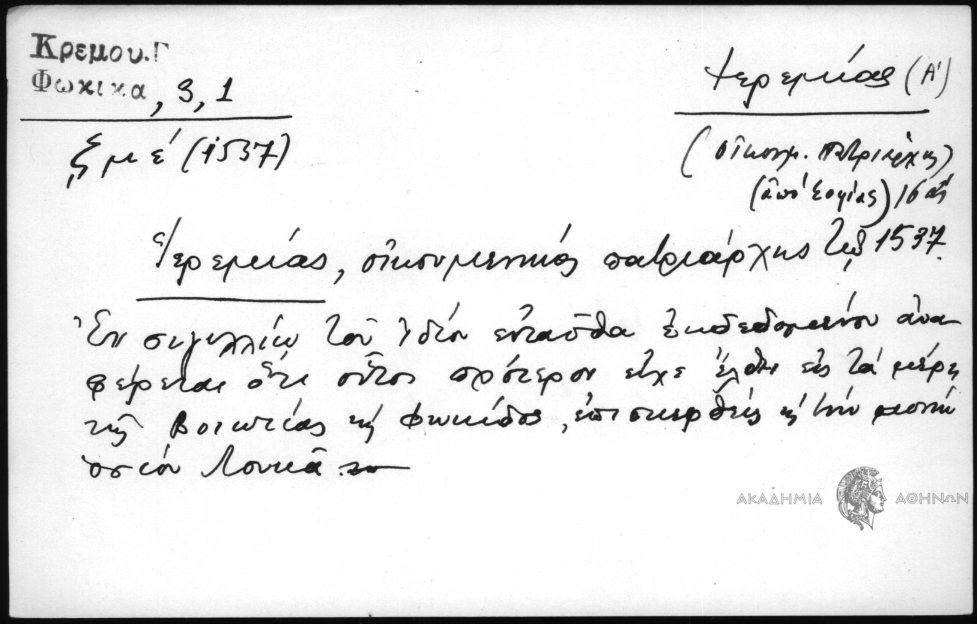 Κρεμου.Γ
Φωκικα, 3, 1
ζμέ (1537)
Ἱερεμίας (Α')
(οἰκουμ. Πατριάρχης)
(ἀπό Σοφίας) 16ος
Ἱερεμίας, οἰκουμενικός πατριάρχης τῷ 1537.
Ἐν σιγιλλίῳ τοῦ ἰδίου ἐνταῦθα ἐκδεδομένου ἀνα-
φέρεται ὅτι οὗτος πρότερον εἶχε ἔλθει εἰς τά μέρη
τῆς Βοιωτίας καί Φωκίδος, ἐπισκεφθείς καί τήν μονήν
ὁσίου Λουκᾶ
ΑΚΑΔΗΜΙΑ ΑΘΗΝΩΝ